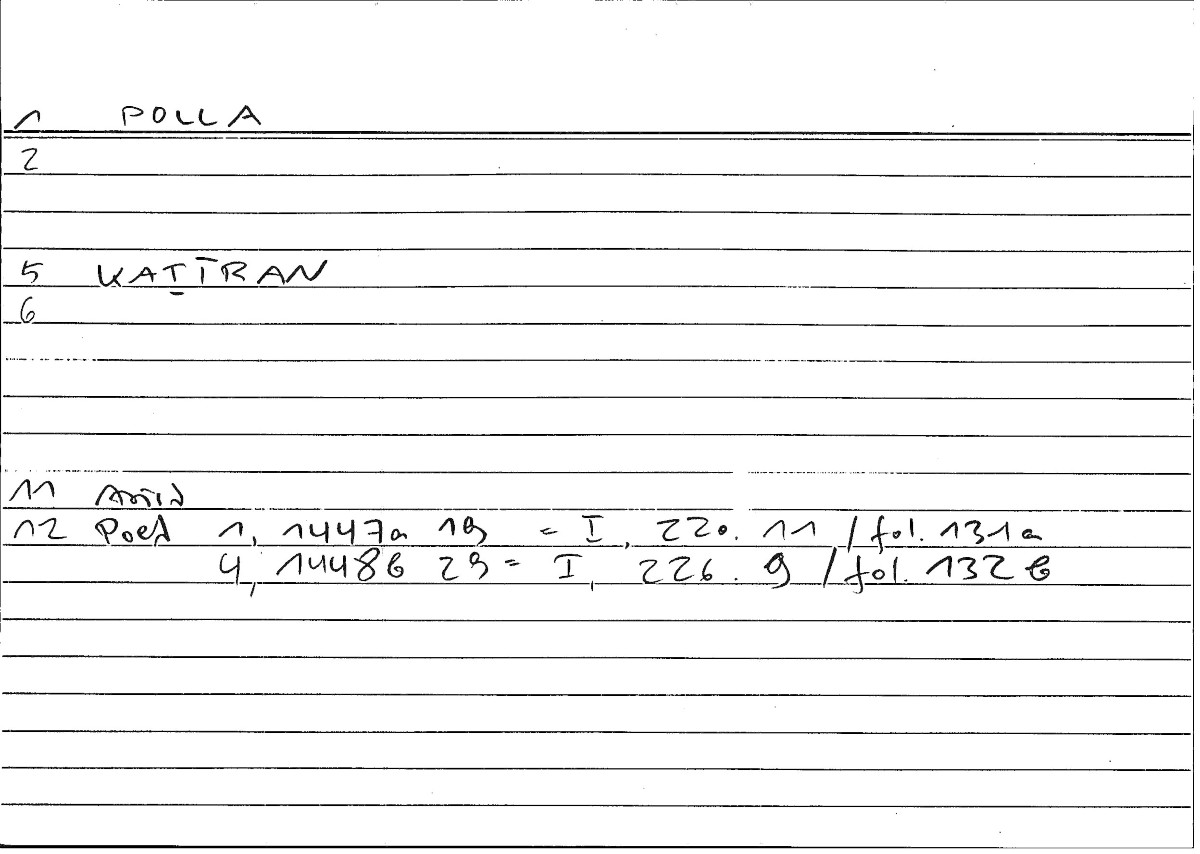 1 POLLA
2
5 KAṮĪRAN
6
11 Arist
12 Poet 1, 1447a 19 = I, 220. 11 / fol. 131a
4, 1448b 29 = I, 226. 9 / fol. 132b